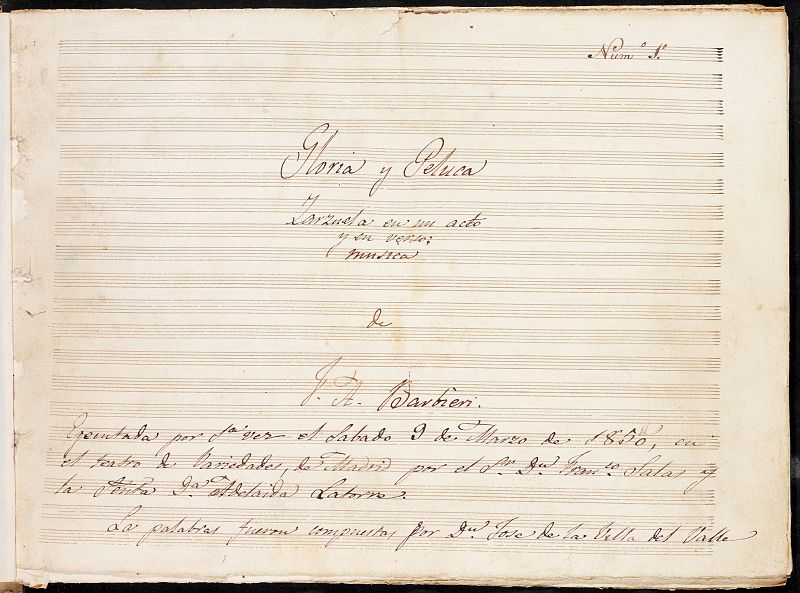 Num.º 1.º
Gloria y Peluca
Zarzuela en un acto
y en verso;
musica
de
F. A. Barbieri.
Ejecutada por 1.ª vez el Sabado 9 de Marzo de 1850, en
el teatro de Variedades, de Madrid por el Sr. Dn. Franco. Salas y
la Señta. Da. Adelaida Latorre.
La palabras fueron compuestas por Dn. Jose de la Villa del Valle